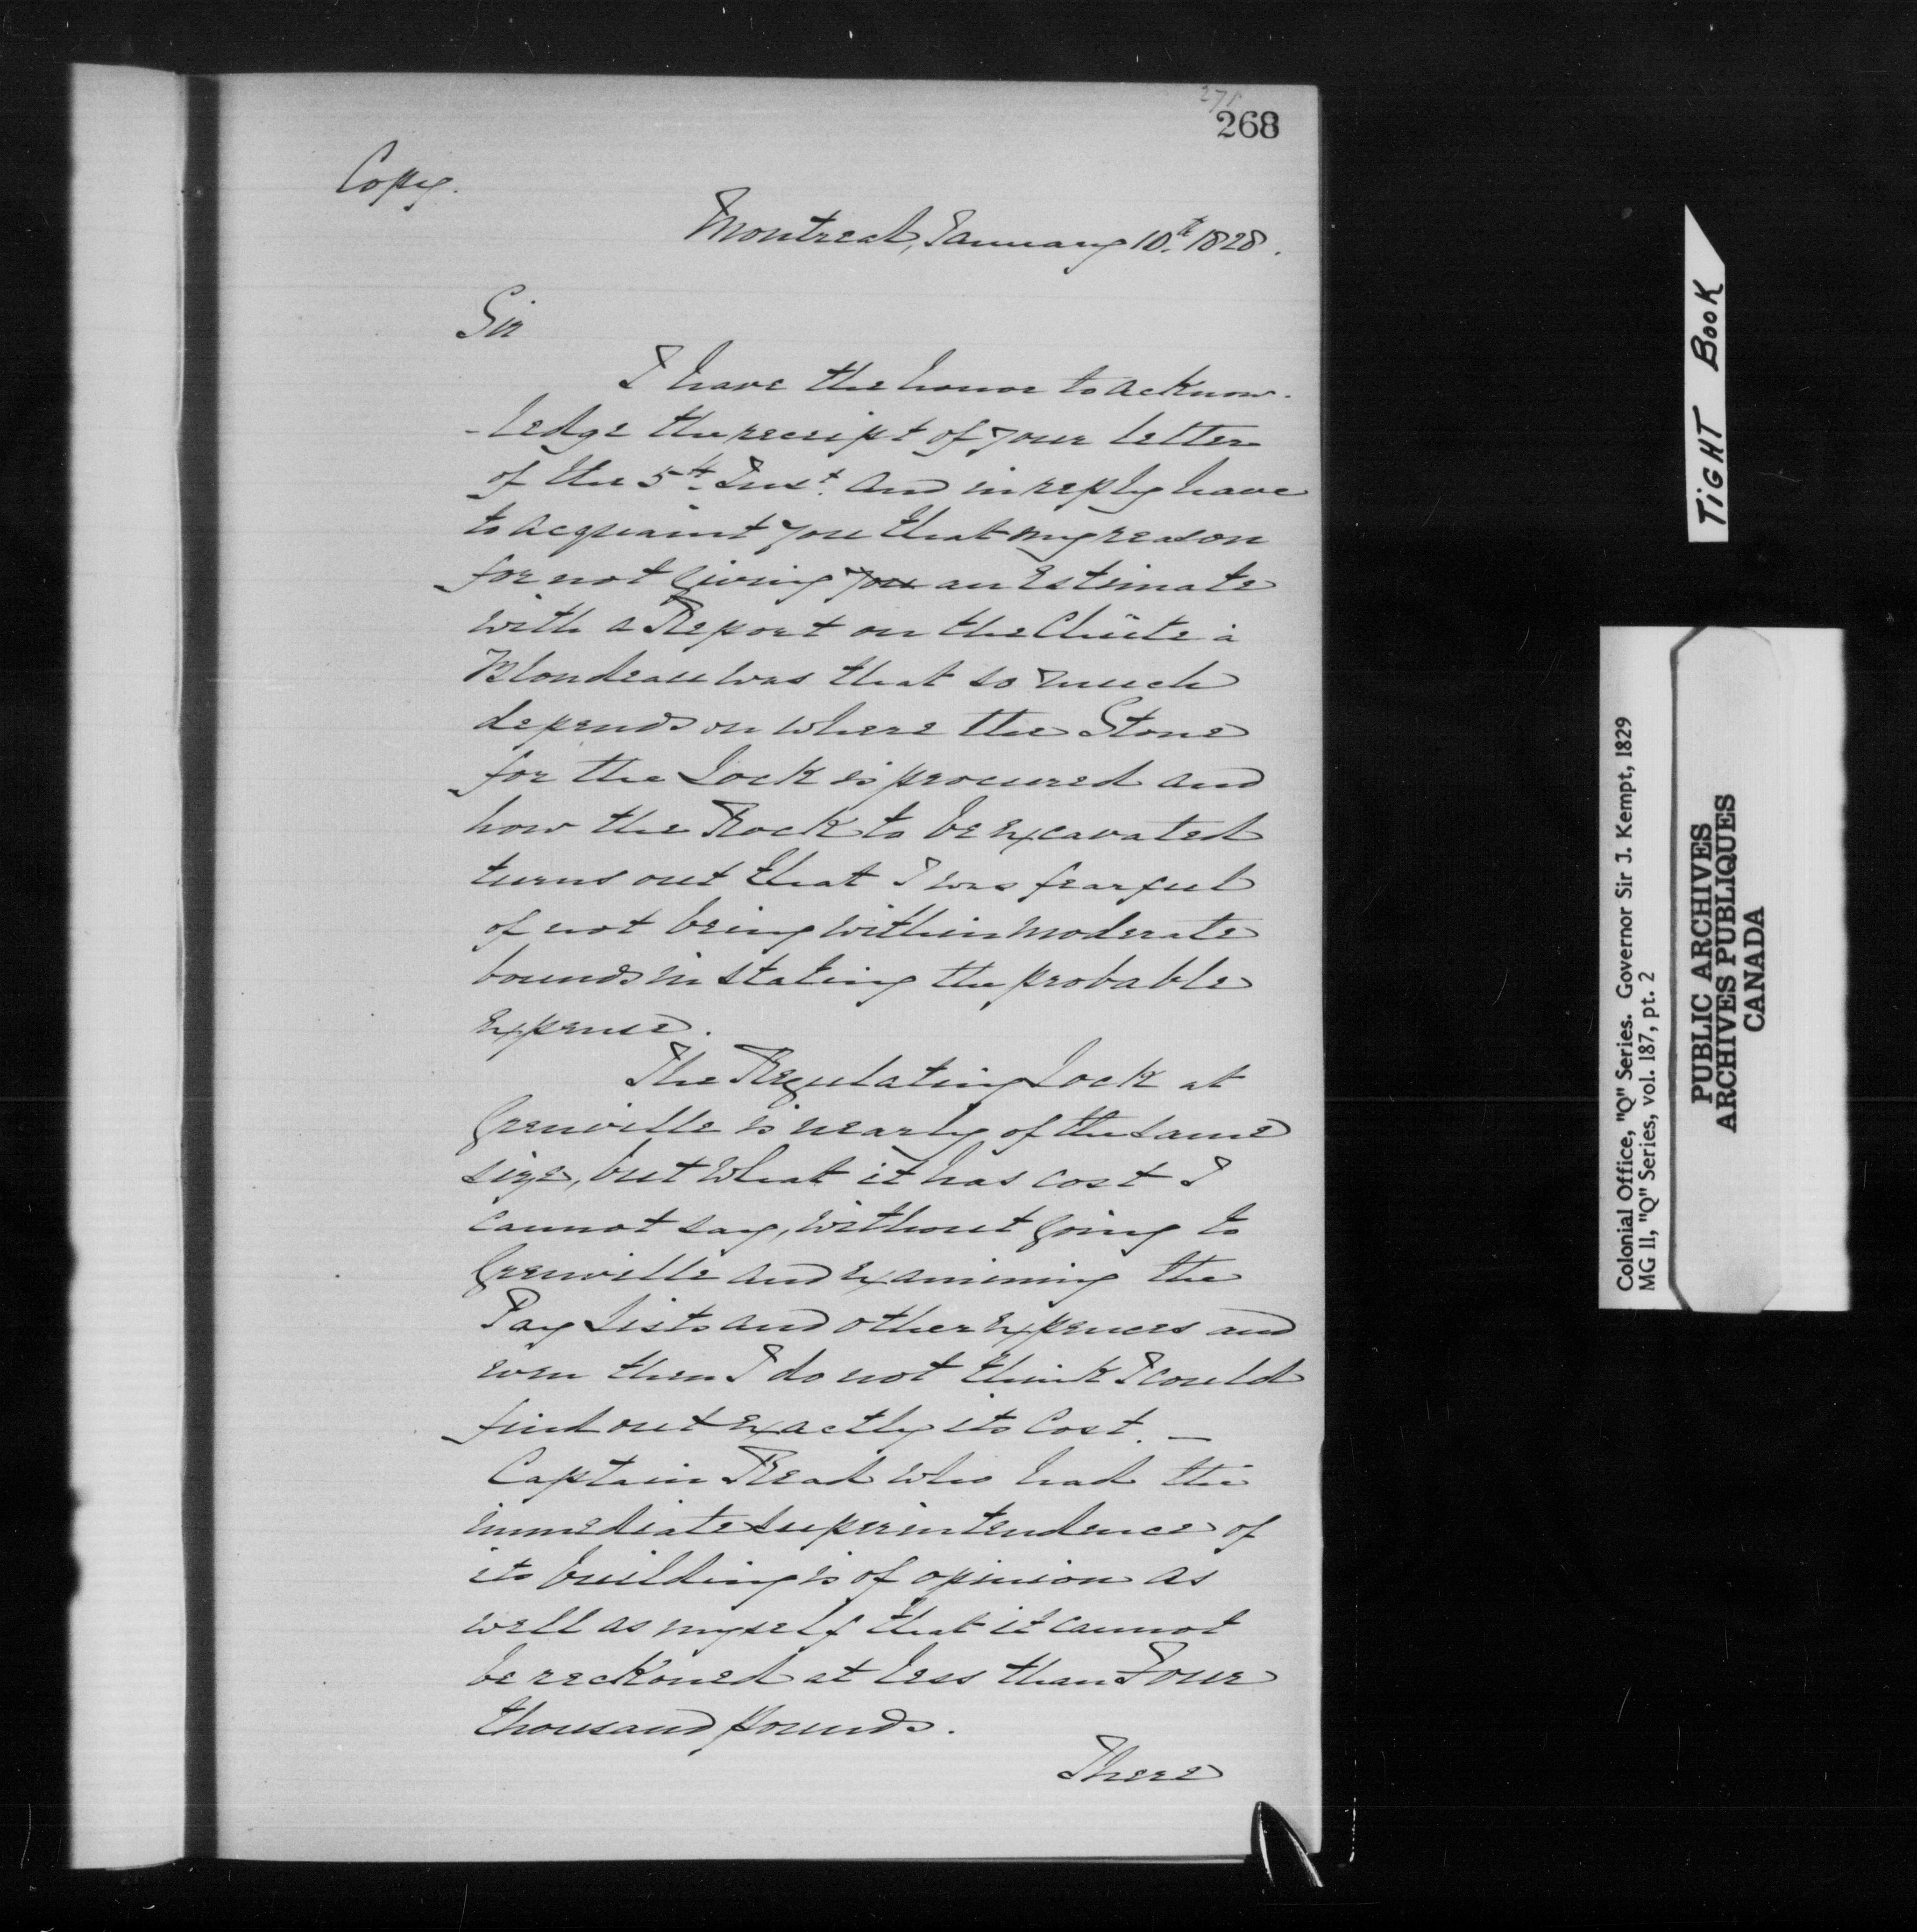 271
268
Copy.
Montreal, January 10th 1828.
Sir
I have the honor to acknow-
-ledge the receipt of your letter
of the 5th Inst. and in reply have
to acquaint you that my reason
for not giving you an Estimate
with a Report on the Chûte à
Blondeau was that so much
depends on where the Stone
for the Lock is procured and
how the Rock to be excavated
turns out that I was fearful
of not being within moderate
bounds in stating the probable
expense.
The Regulating Lock at
Grenville is nearly of the same
size, but what it has cost I
cannot say, without going to
Grenville and examining the
Pay Lists and other expences and
even then I do not think I could
find out exactly its Cost. —
Captain Read who had the
immediate superintendence of
its building is of opinion as
well as myself that it cannot
be reckoned at less than Four
thousand pounds.
There
TIGHT BOOK
Colonial Office, "Q" Series. Governor Sir J. Kempt, 1829
MG 11, "Q" Series, vol. 187, pt. 2
PUBLIC ARCHIVES
ARCHIVES PUBLIQUES
CANADA